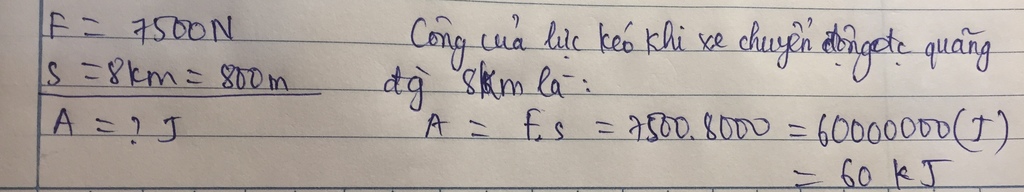 F = 7500N
S = 8km = 800m
A = ? J
Công của lực kéo khi xe chuyển động đc quãng
đg 8km là:
A = F.s = 7500.8000 = 60000000(J)
= 60 kJ